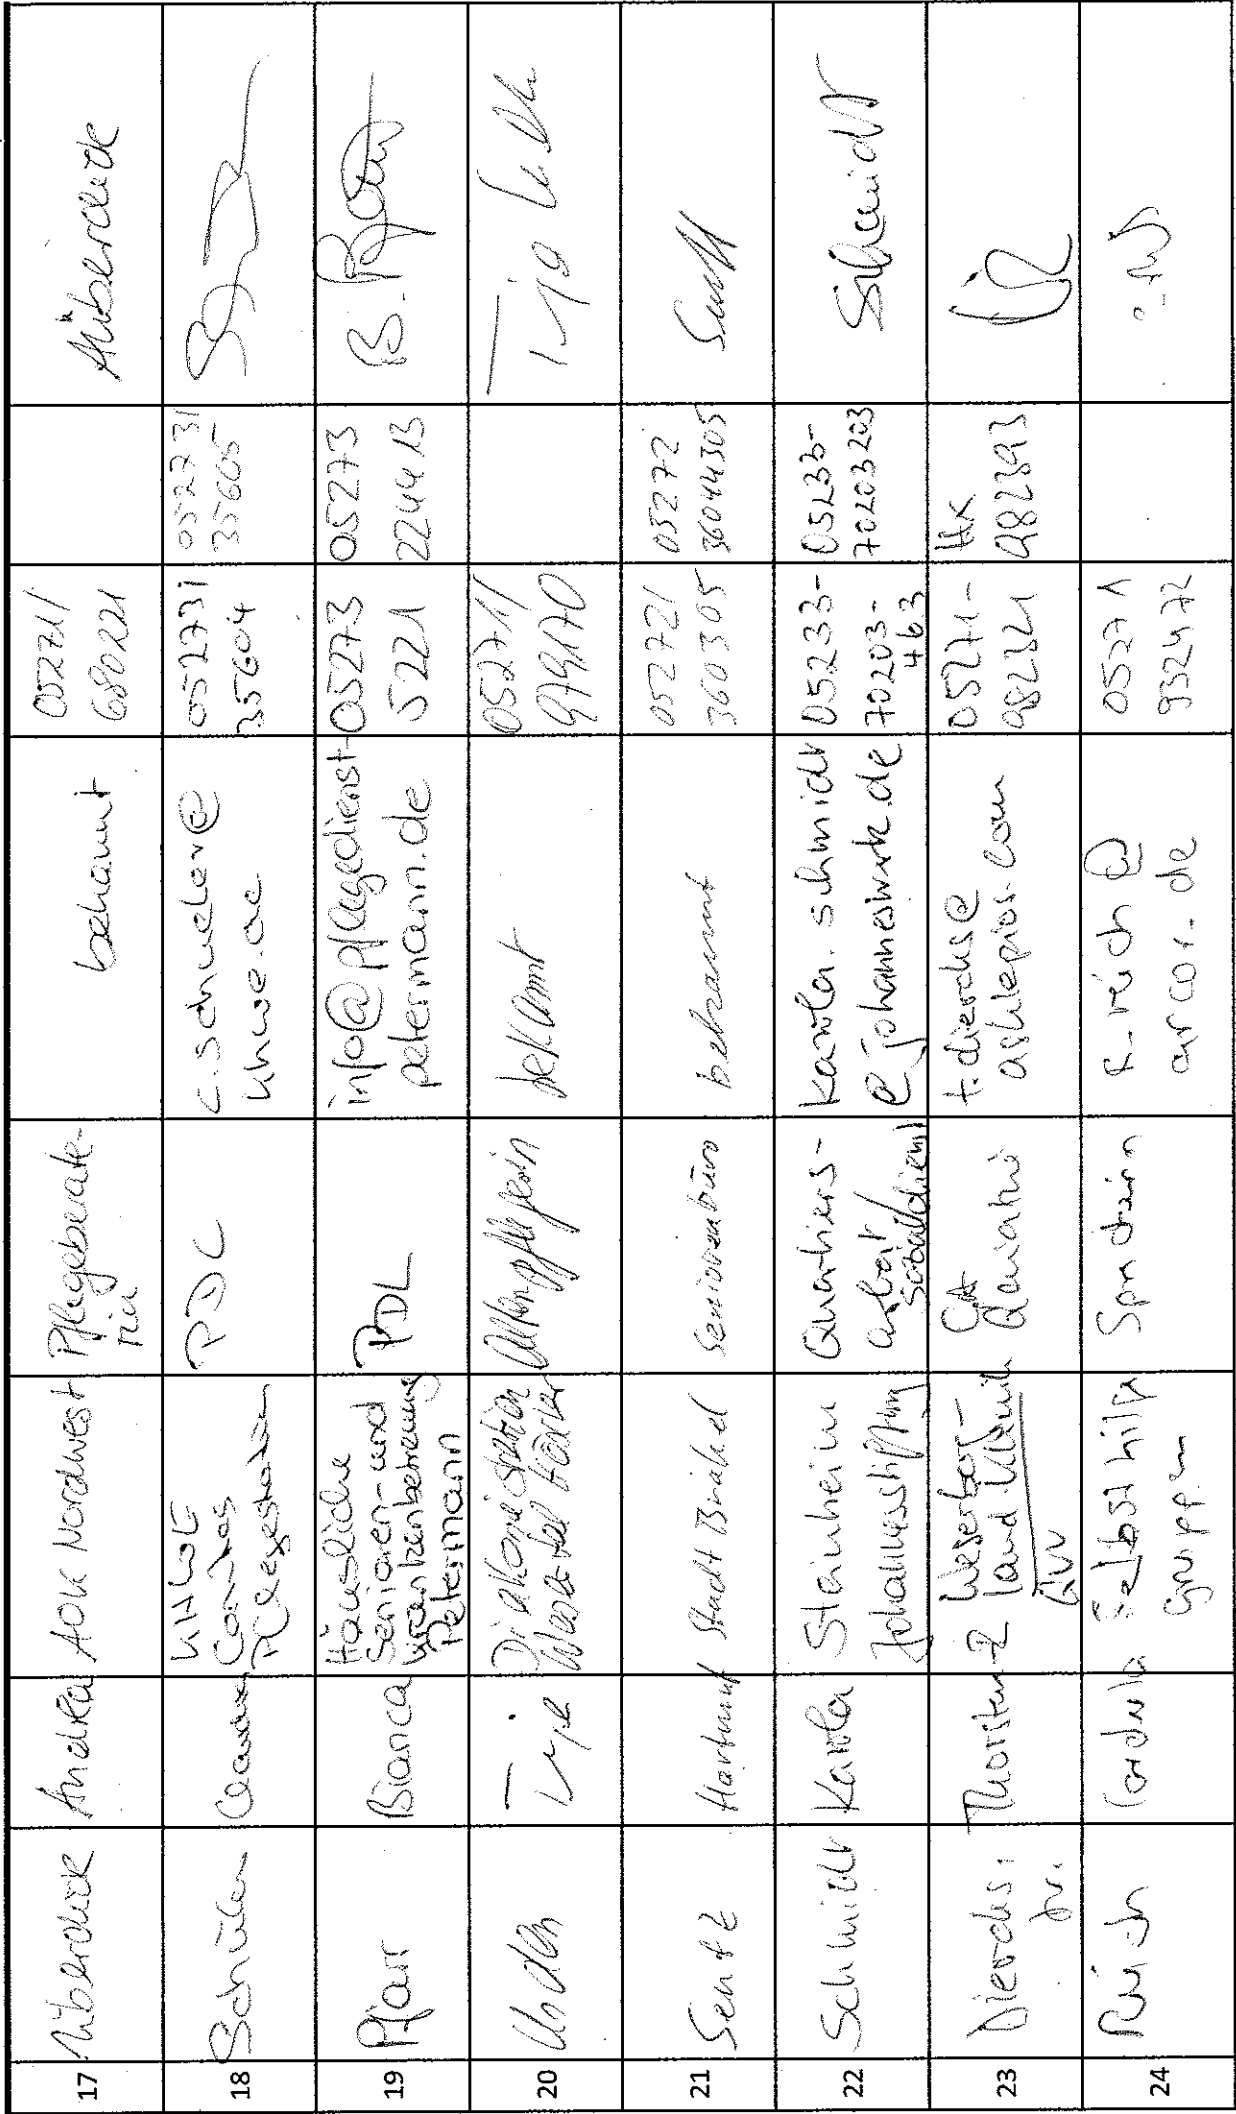 17
Andrea
AOK Nordwest
Pflegeberate-
rin
bekannt
05271/
680221
18
Schüler
KHWE
PDL
c.schueler@
khwe.de
05273/
35604
05273/
35605
19
Pfarr
Bianca
Häusliche
Senioren- und
Krankenbetreuung
Petermann
PDL
info@pflegedienst-
petermann.de
05273
5221
05273
224413
20
Tirja
Diakoniestation
Wesertal Höxter
Altenpflegerin
bekannt
05271/
21
Hartmut
Stadt Brakel
Seniorenbüro
bekannt
05272/
360305
05272
36044305
22
Schmidt
Karola
Steinheim
Johannesstiftung
Quartiers-
arbeit/
Sozialdienst
karola.schmidt
@johanneswerk.de
05233-
70203-
463
05233-
70203203
Schmidt
23
Dierchs,
Dr.
Thorsten
Weserberg-
land Klinik
CA
Geriatrie
t.dierchs@
asklepios.com
05271-
982321
Hx
982393
24
Reich
Cordula
Selbsthilfe
Gruppen
Sprecherin
arcor.de
05271
9352472